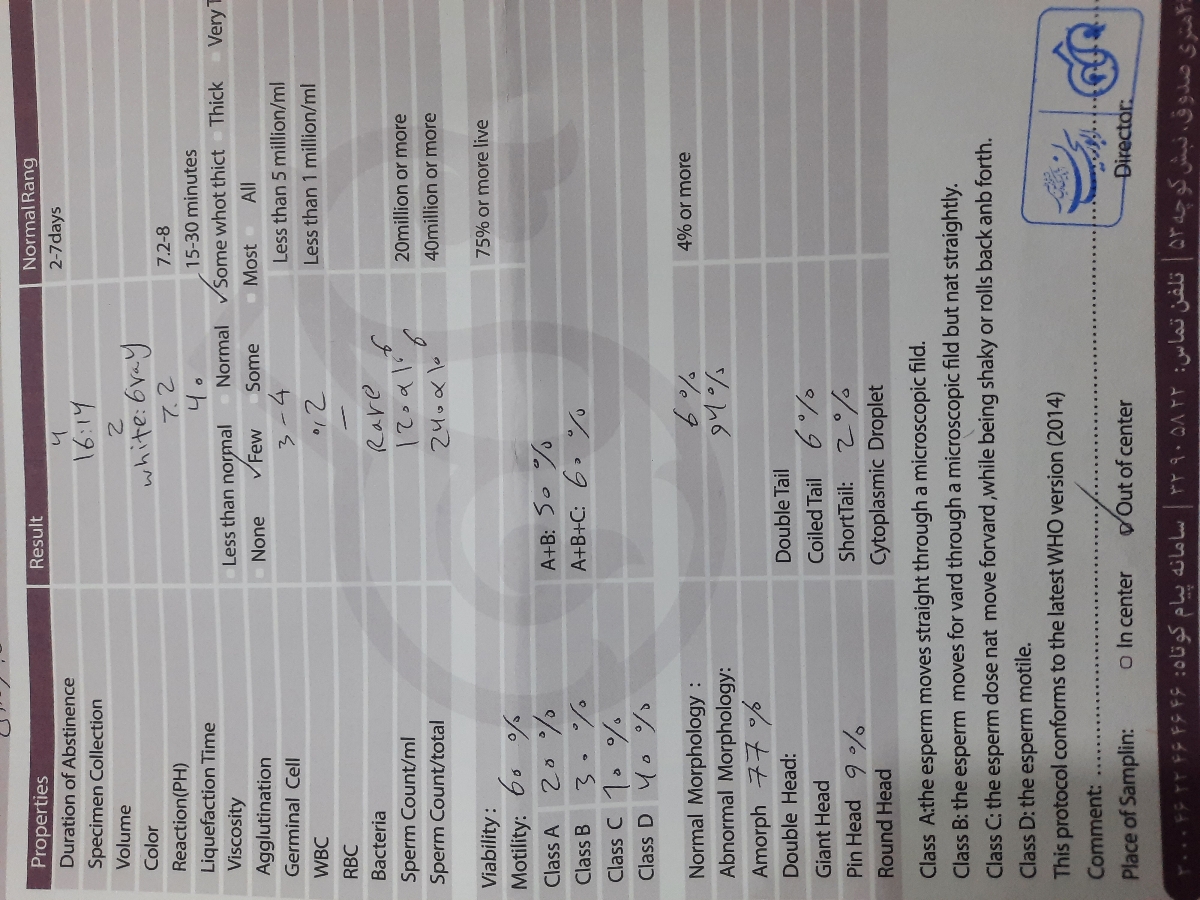 Properties Result Normal Rang
Duration of Abstinence 4 2-7days
Specimen Collection 16:14
Volume 2
Color white:Gray
Reaction(PH) 7.2 7.2-8
Liquefaction Time 40 15-30 minutes
Viscosity Less than normal Normal ✓ Some whot thict Thick Very T
Agglutination None ✓ Few Some Most All
Germinal Cell 3-4 Less than 5 million/ml
WBC 0,2 Less than 1 million/ml
RBC —
Bacteria Rare
Sperm Count/ml 120x10 6 20million or more
Sperm Count/total 240x10 6 40million or more
Viability: 75% or more live
Motility: 60 %
Class A 20 % A+B: 50 %
Class B 30 % A+B+C: 60 %
Class C 10 %
Class D 40 %
Normal Morphology : 6 % 4% or more
Abnormal Morphology: 94 %
Amorph 77 %
Double Head: Double Tail
Giant Head Coiled Tail 6 %
Pin Head 9 % ShortTail: 2 %
Round Head Cytoplasmic Droplet
Class A:the esperm moves straight through a microscopic fild.
Class B: the esperm moves for vard through a microscopic fild but nat straightly.
Class C: the esperm dose nat move forvard ,while being shaky or rolls back anb forth.
Class D: the esperm motile.
This protocol conforms to the latest WHO version (2014)
Comment:
Place of Samplin: In center ✓ Out of center Director:
متری صدوق، نبش کوچه ۵۳ | تلفن تماس: ۳۲۹۰۵۸۲۲ | سامانه پیام کوتاه: ۳۰۰۰۶۶۳۲۴۶۴۶۴۶